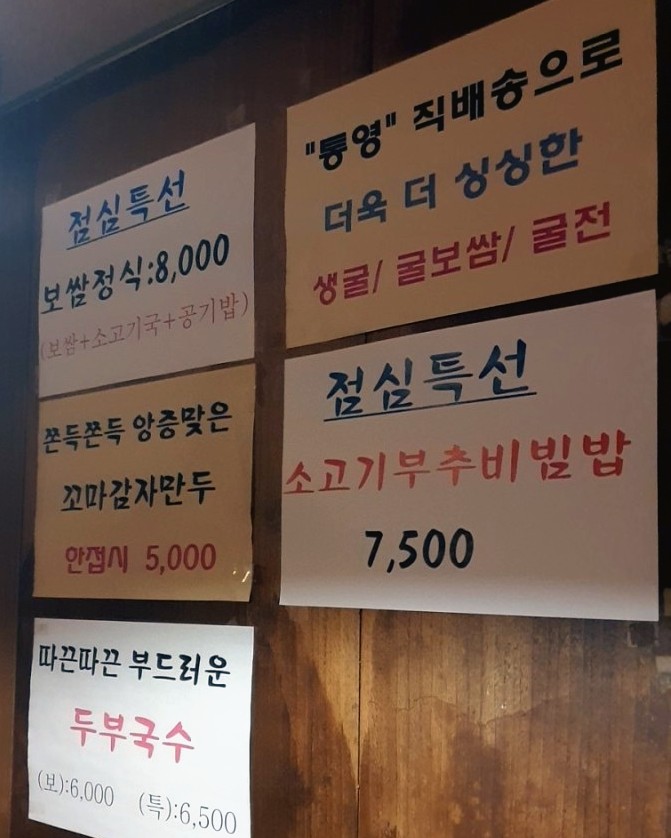 점심특선
보쌈정식:8,000
(보쌈+소고기국+공기밥)
쫀득쫀득 앙증맞은
꼬마감자만두
안접시 5,000
따끈따끈 부드러운
두부국수
(보):6,000 (특):6,500
"통영" 직배송으로
더욱 더 싱싱한
생굴/ 굴보쌈/ 굴전
점심특선
소고기부추비빔밥
7,500